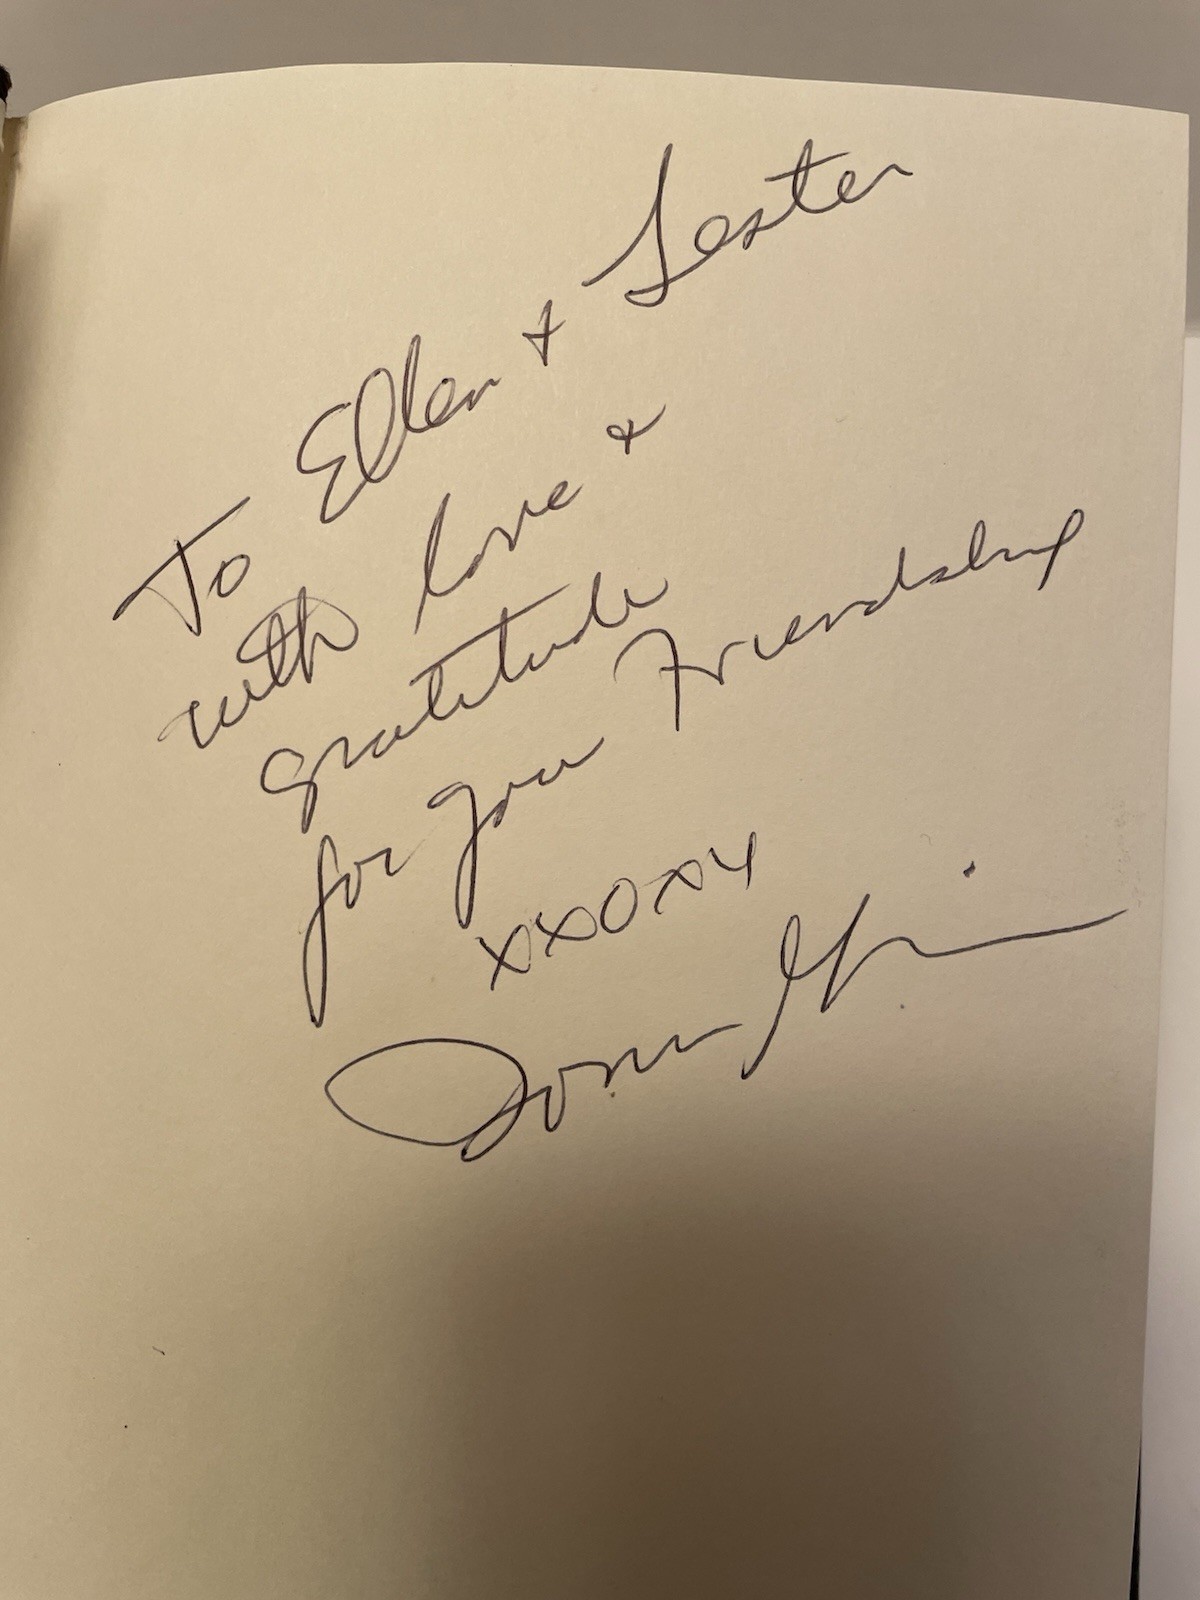 To Ellen + Lester
with love +
gratitude
for your Friendship
xxoxx